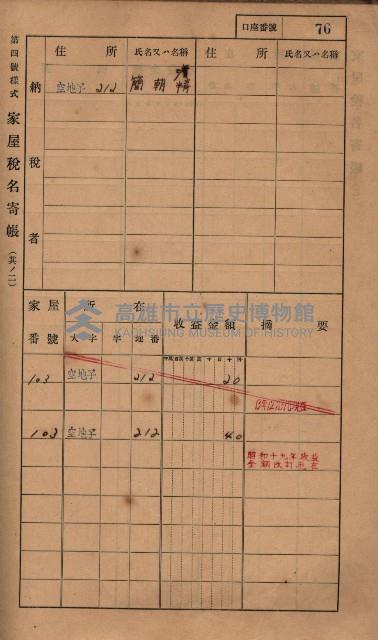 口座番號 76
第四號樣式 家屋稅名寄帳 (其ノ二)
住所 氏名又ハ名稱 住所 氏名又ハ名稱
納稅者
空地子 212 簡朝
家屋番號 所在 收益金額 摘要
大字 字 地番
103 空地子 212 20
103 空地子 212 40
昭和十九年收益
金額改訂
高雄市立歷史博物館
KAOHSIUNG MUSEUM OF HISTORY